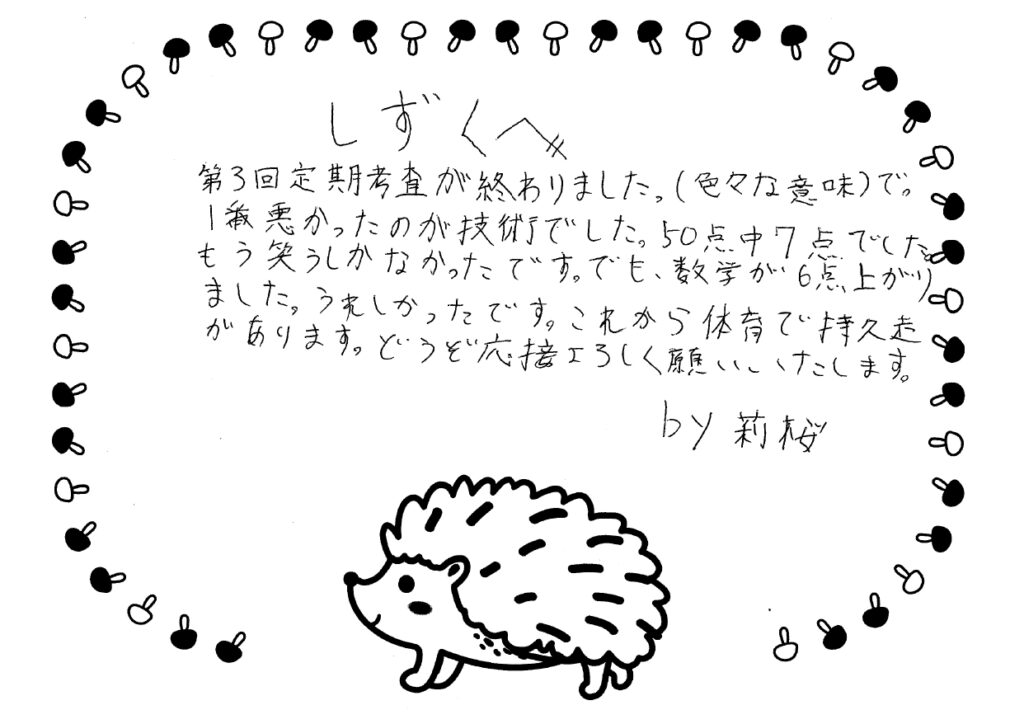 しずくへ〃
第3回定期考査が終わりました。(色々な意味)で。
1番悪かったのが技術でした。50点中7点でした。
もう笑うしかなかったです。でも、数学が6点上がり
ました。うれしかったです。これから体育で持久走
があります。どうぞ応接よろしく願いいたします。
by 莉桜